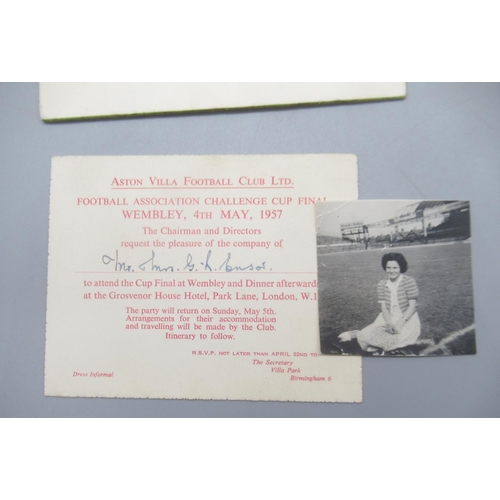 ASTON VILLA FOOTBALL CLUB LTD.
FOOTBALL ASSOCIATION CHALLENGE CUP FINAL
WEMBLEY, 4TH MAY, 1957
The Chairman and Directors
request the pleasure of the company of
Mr. & Mrs. G. R.
to attend the Cup Final at Wembley and Dinner afterwards
at the Grosvenor House Hotel, Park Lane, London, W.1
The party will return on Sunday, May 5th.
Arrangements for their accommodation
and travelling will be made by the Club.
Itinerary to follow.
R.S.V.P. NOT LATER THAN APRIL 22ND TO
The Secretary
Villa Park
Dress Informal
Birmingham 6